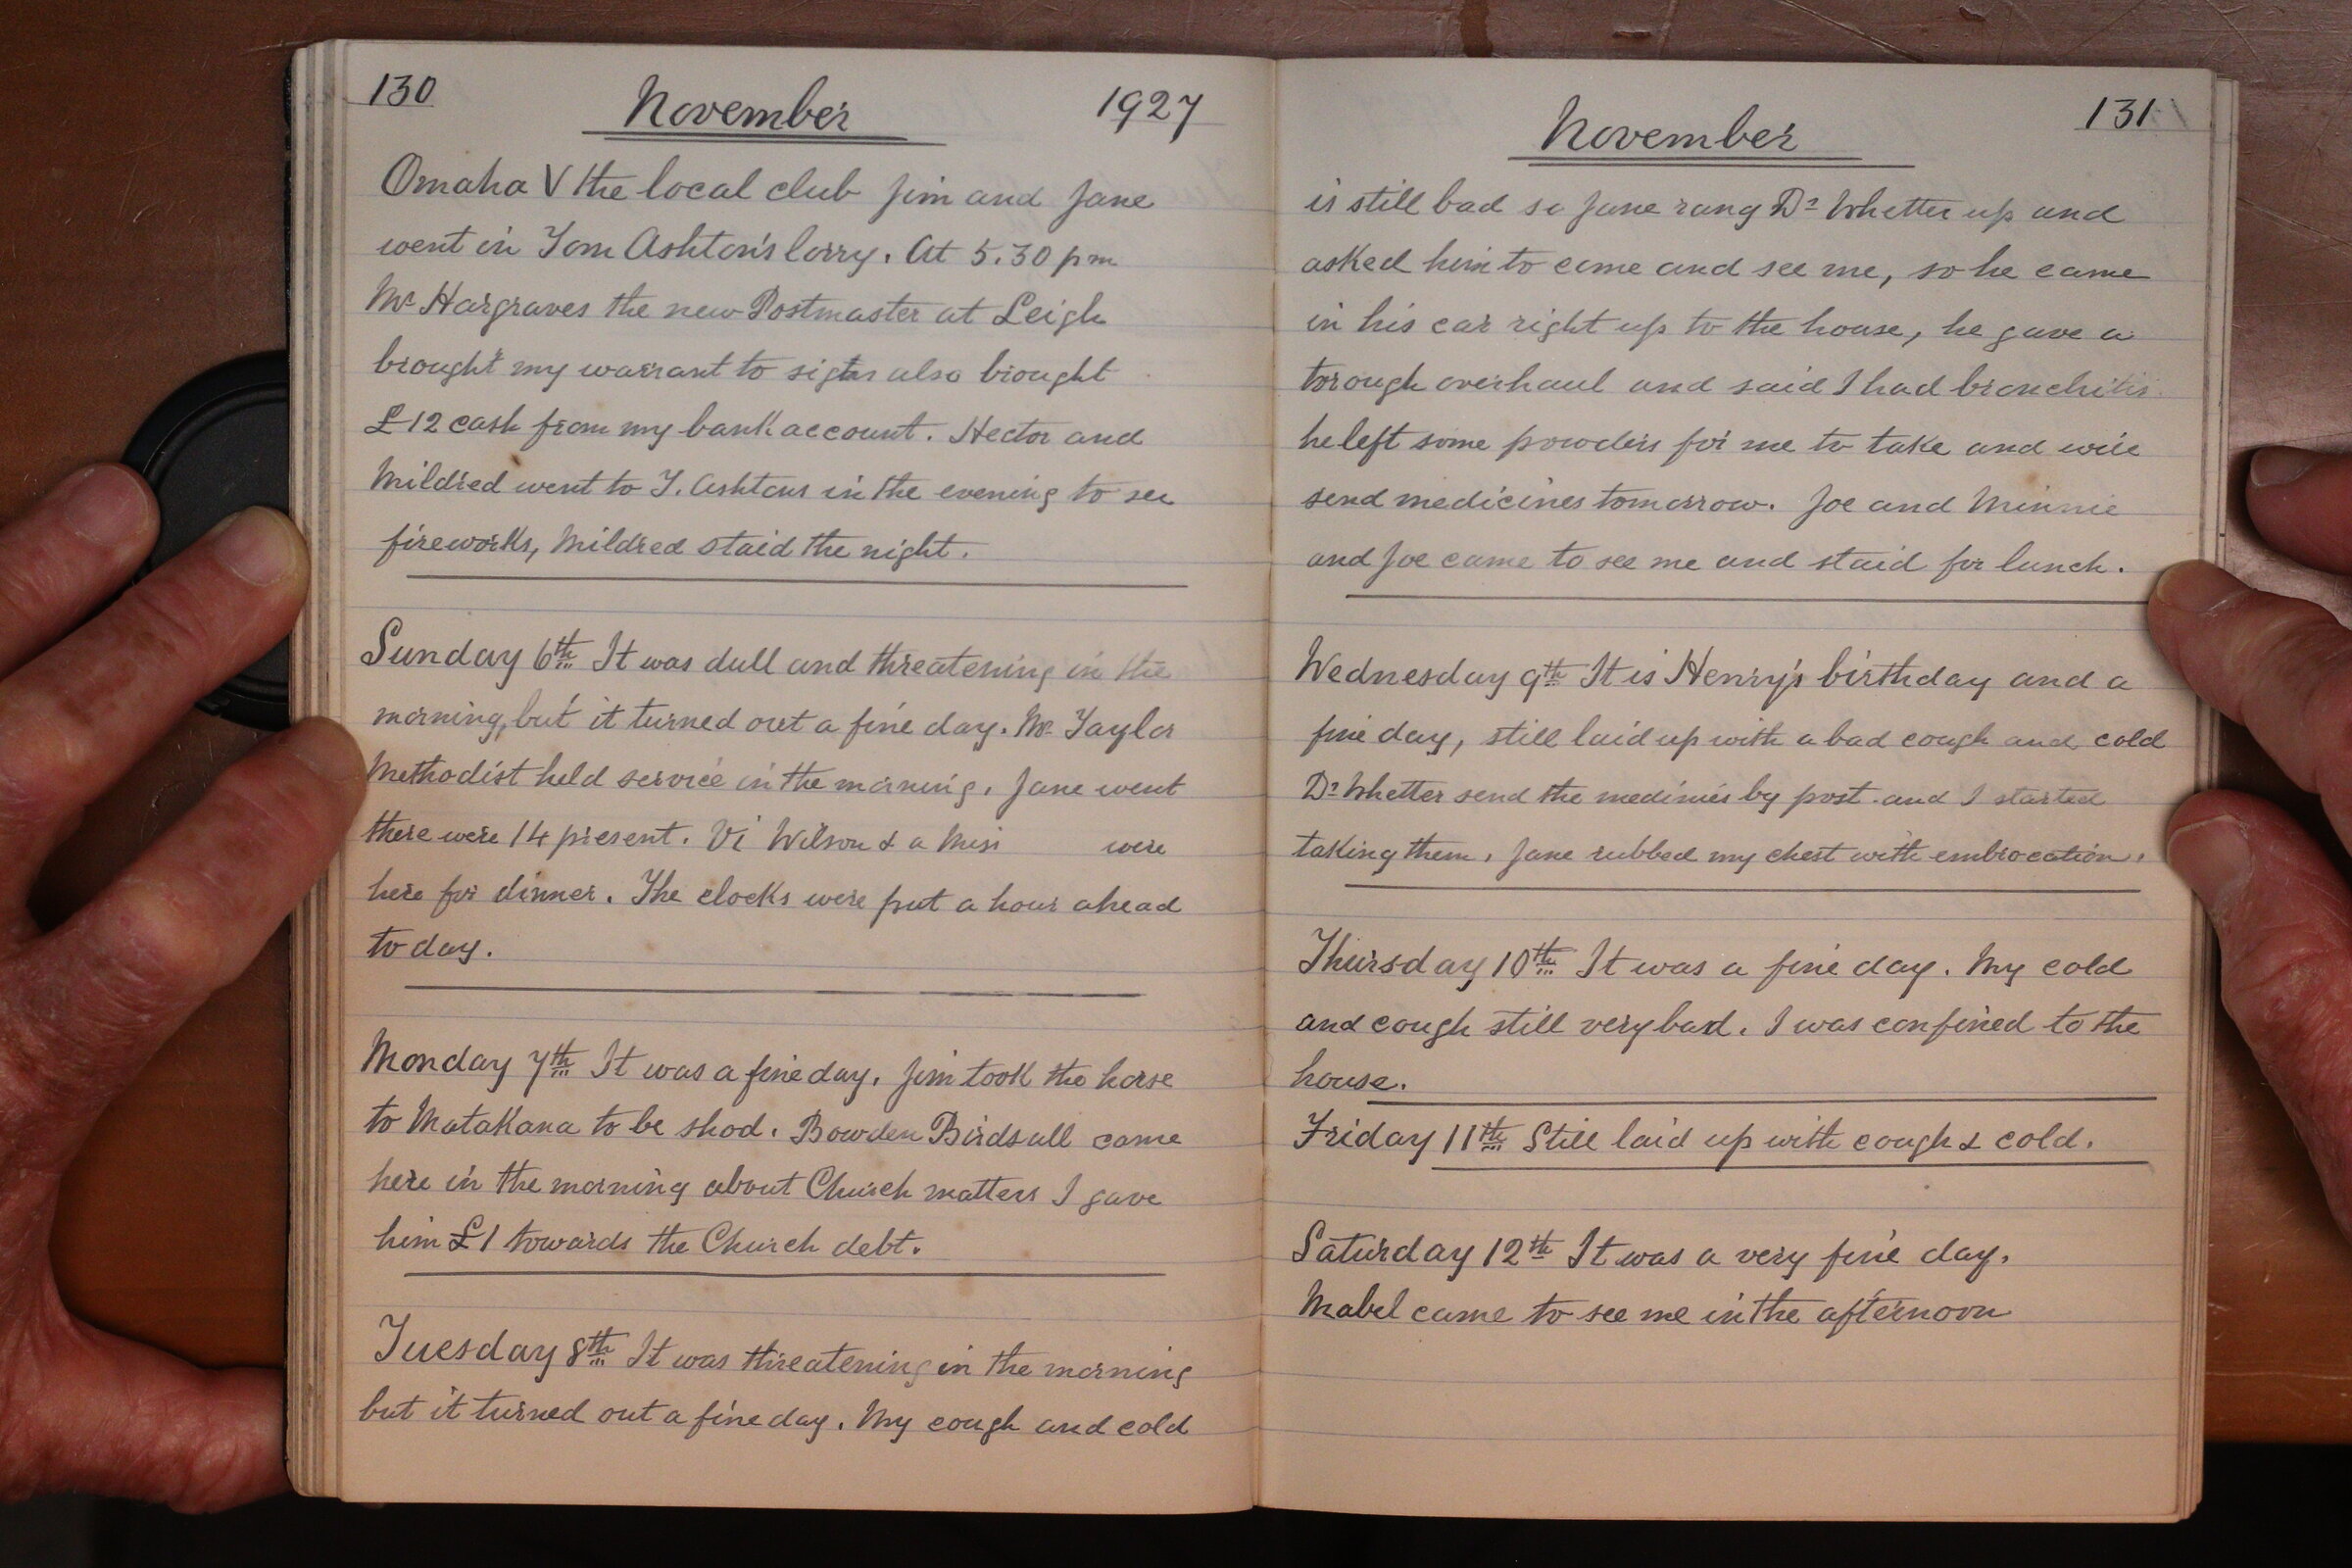 130
November
1927
Omaha V the local club Jim and Jane
went in Tom Ashton's lorry. At 5.30 pm
Mr Hargraves the new Postmaster at Leigh
brought my warrant to sign also brought
£12 cash from my bank account. Hector and
Mildred went to T. Ashtons in the evening to see
fireworks, Mildred staid the night.
Sunday 6th It was dull and threatening in the
morning, but it turned out a fine day. Mr Taylor
Methodist held service in the morning. Jane went
there were 14 present. Vi Wilson & a Miss were
here for dinner. The clocks were put a hour ahead
to day.
Monday 7th It was a fine day. Jim took the horse
to Matakana to be shod. Bowden Birdsall came
here in the morning about Church matters I gave
him £1 towards the Church debt.
Tuesday 8th It was threatening in the morning
but it turned out a fine day. My cough and cold
November
131
is still bad so Jane rang Dr Whetter up and
asked him to come and see me, so he came
in his car right up to the house, he gave a
torough overhaul and said I had bronchitis
he left some powders for me to take and will
send medicines tomorrow. Joe and Minnie
and Joe came to see me and staid for lunch.
Wednesday 9th It is Henry's birthday and a
fine day, still laid up with a bad cough and cold
Dr Whetter send the medinies by post and I started
taking them. Jane rubbed my chest with embrocation.
Thursday 10th It was a fine day. My cold
and cough still very bad. I was confined to the
house.
Friday 11th Still laid up with cough & cold.
Saturday 12th It was a very fine day.
Mabel came to see me in the afternoon